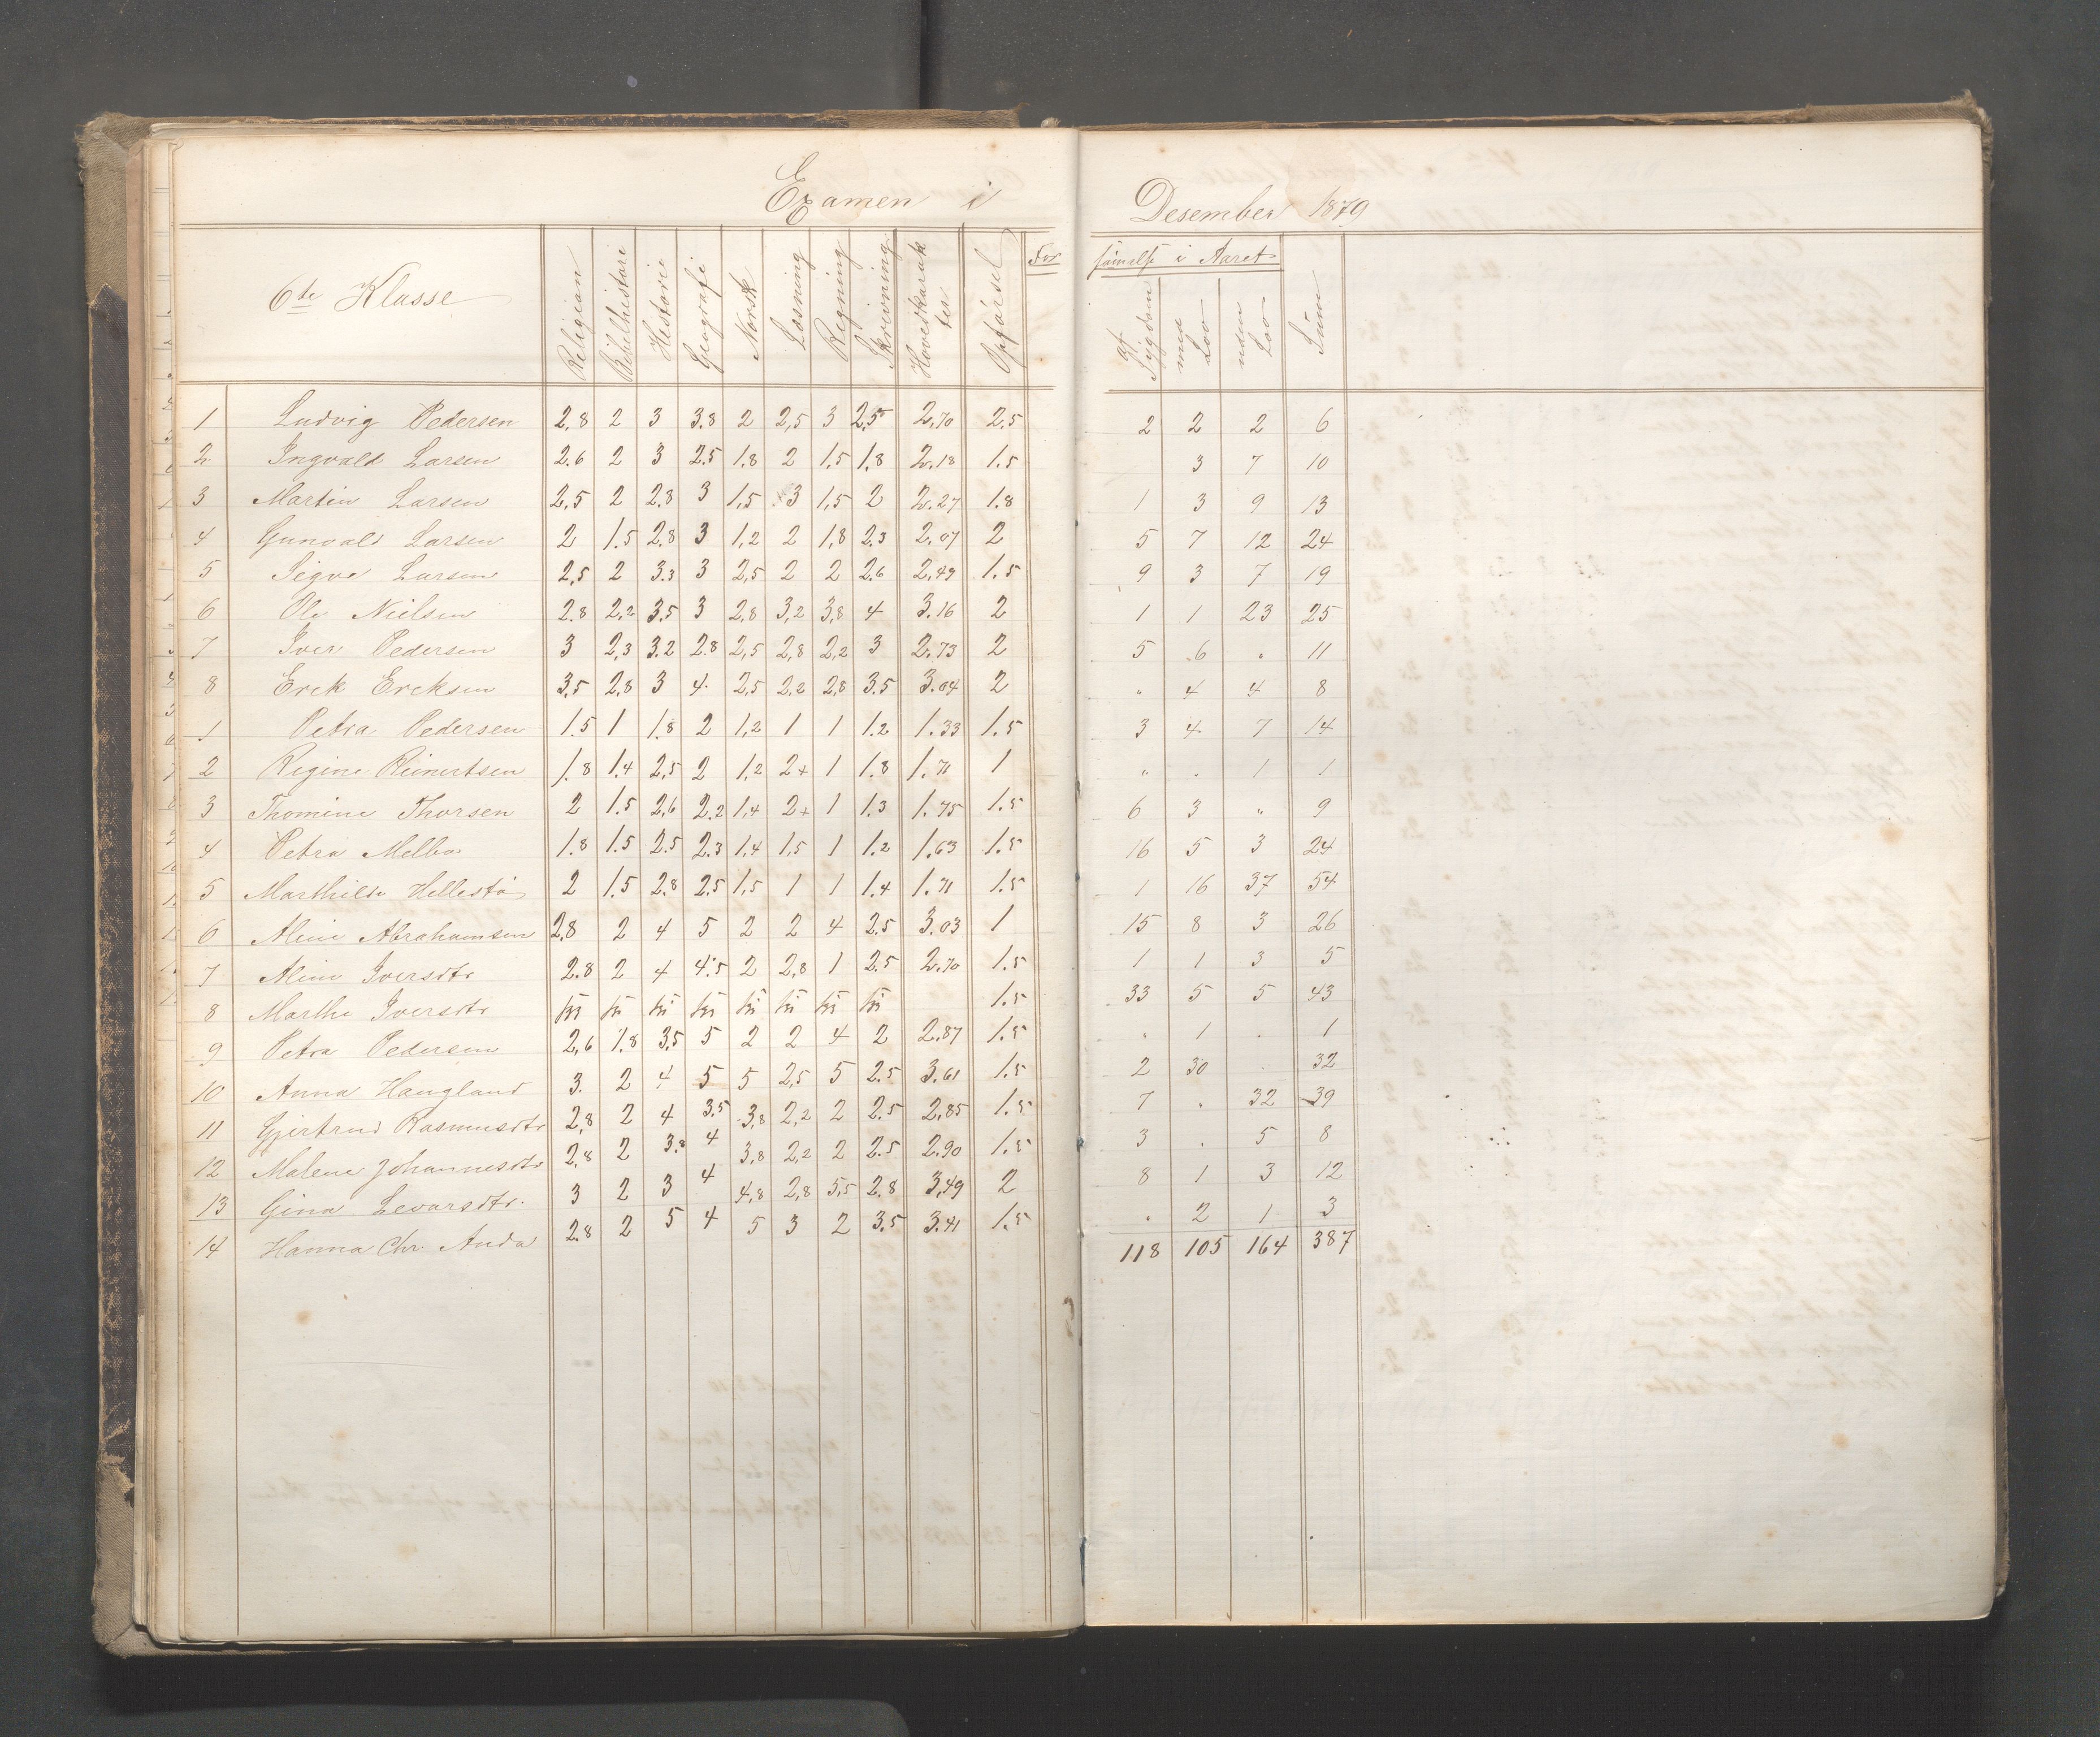 Examen i Desember 1879
6te Klasse | Religion | Bibelhistorie | Historie | Geografi | Norsk | Læsning | Regning | Skrivning | Hovedkarakter | Opførsel | Forsömelse i Aaret: af Sygdom | med Lov | uden Lov | Sum
1 Ludvig Pedersen 2.8 2 3 3.8 2 2,5 3 2,5 2,70 2,5 2 2 2 6
2 Ingvald Larsen 2.6 2 3 2.5 1.8 2 1,5 1,8 2.18 1.5 3 7 10
3 Martin Larsen 2,5 2 2.8 3 1,5 3 1,5 2 2.27 1.8 1 3 9 13
4 Gunvald Larsen 2 1.5 2.8 3 1,2 2 1,8 2.3 2.07 2 5 7 12 24
5 Sigve Larsen 2,5 2 3.3 3 2,5 2 2 2.6 2,49 1.5 9 3 7 19
6 Ole Nielsen 2.8 2,2 3,5 3 2,8 3,2 3,8 4 3.16 2 1 1 23 25
7 Iver Pedersen 3 2,3 3.2 2.8 2,5 2,8 2,2 3 2.73 2 5 6 . 11
8 Erek Ereksen 3,5 2,8 3 4. 2,5 2,2 2,8 3.5 3.04 2 " 4 4 8
1 Petra Pedersen 1.5 1 1.8 2 1,2 1 1 1.2 1.33 1.5 3 4 7 14
2 Regine Reinertsen 1.8 1.4 2,5 2 1,2 2+ 1 1.8 1.71 1 " . 1 1
3 Thomine Thorsen 2 1.5 2,6 2.2 1,4 2+ 1 1.3 1.75 1.5 6 3 " 9
4 Petra Melbo 1.8 1.5 2.5 2.3 1,4 1,5 1 1.2 1.63 1.5 16 5 3 24
5 Marthilde Hellestö 2 1.5 2.8 2.5 1,5 1 1 1.4 1.71 1.5 1 16 37 54
6 Aline Abrahamsen 2.8 2 4 5 2 2 4 2.5 3.03 1 15 8 3 26
7 Aline Iversdtr 2.8 2 4 4.5 2 2,8 1 2.5 2.70 1.5 1 1 3 5
8 Marthe Iversdtr 1.5 33 5 5 43
9 Petra Pedersen 2,6 1.8 3,5 5 2 2 4 2 2.87 1.5 " 1 . 1
10 Anna Haugland 3. 2 4 5 5 2,5 5 2.5 3.61 1.5 2 30 . 32
11 Gjertrud Rasmusdtr 2,8 2 4 3.5 3,8 2,2 2 2.5 2,85 1.5 7 . 32 39
12 Malene Johannesdtr 2,8 2 3.8 4 3,8 2,2 2 2.5 2.90 1.5 3 . 5 8
13 Gina Levorsdtr. 3 2 3 4 4,8 2,8 5,5 2.8 3,49 2 8 1 3 12
14 Hanna Chr. Anda 2.8 2 5 4 5 3 2 3.5 3.41 1.5 . 2 1 3
118 105 164 387